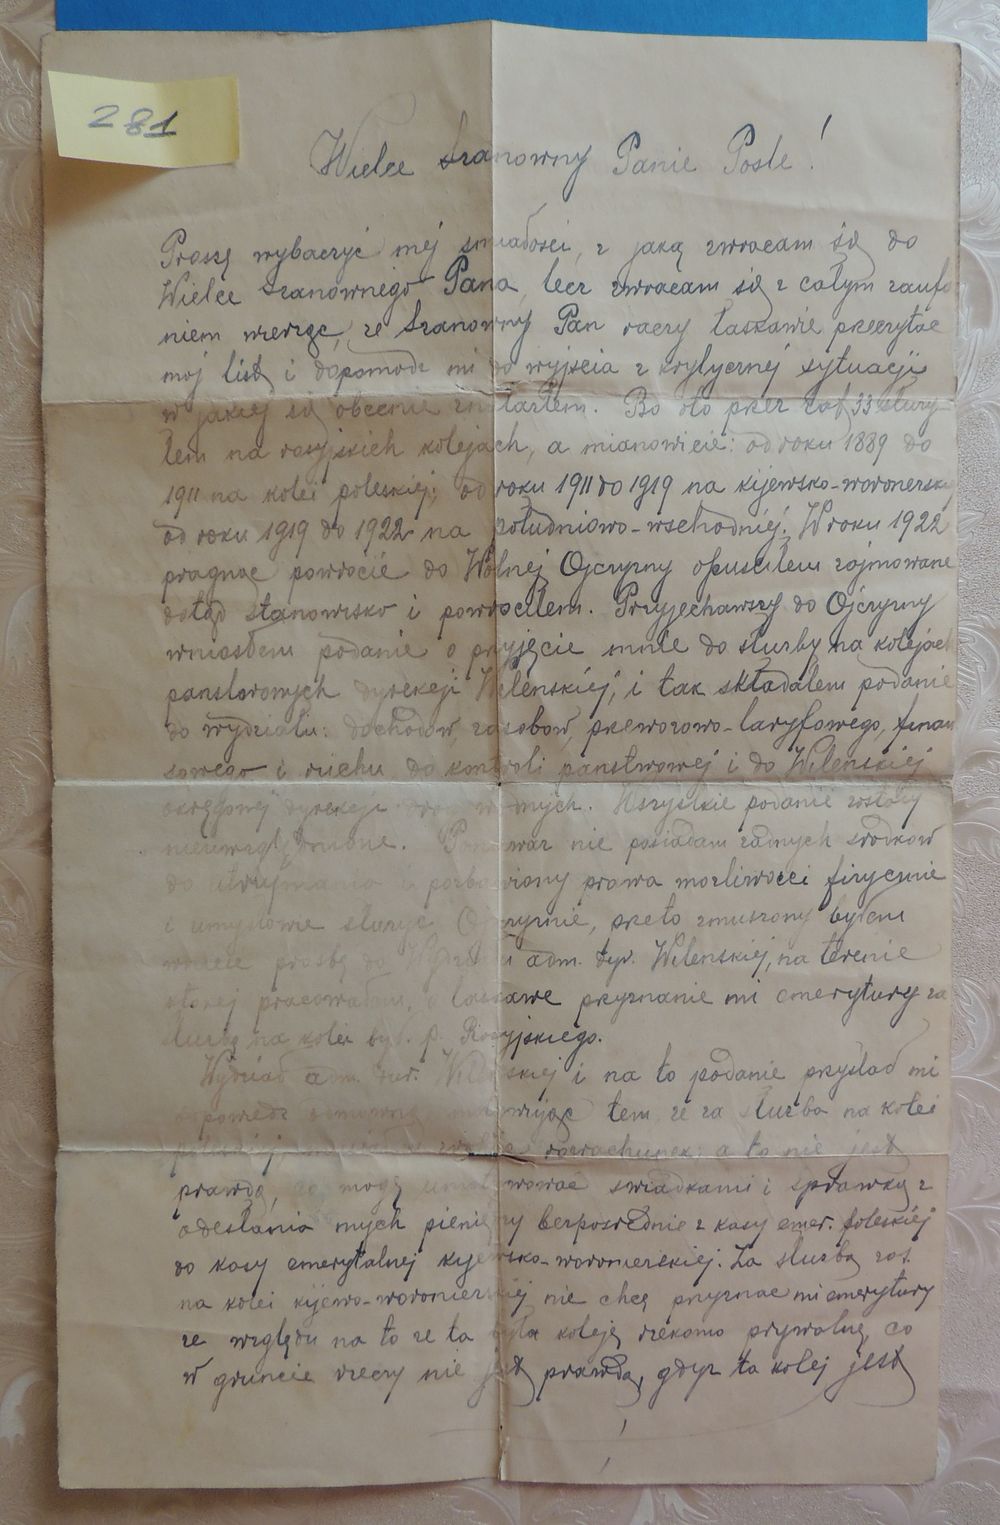 281
Wielce Szanowny Panie Pośle!
Proszę wybaczyć mej śmiałości, z jaką zwracam się do
Wielce Szanownego Pana, lecz zwracam się z całym zaufa
niem wierząc, że Szanowny Pan raczy łaskawie przeczytać
mój list i dopomodz mi do wyjścia z krytycznej sytuacji
w jakiej się obecnie znalazłem. Bo oto przez 33 służy
łem na rosyjskich kolejach, a mianowicie: od roku 1889 do
1911 na kolei poleskiej; od roku 1911 do 1919 na kijewsko-woroneżskiej
od roku 1919 do 1922 na południowo-wschodniej. W roku 1922
pragnąc powrócić do Wolnej Ojczyzny opuściłem zajmowane
dotąd stanowisko i powróciłem. Przyjechawszy do Ojczyzny
wniosłem podanie o przyjęcie mnie do służby na kolejach
państwowych dyrekcji Wileńskiej, i tak składałem podanie
do wydziału: dochodów, zasobów, przewozowo-taryfowego, finan
sowego i ruchu do kontroli państwowej i do Wileńskiej
okręgowej dyrekcji. Wszystkie podanie zostały
nieuwzględnione. Ponieważ nie posiadam żadnych środków
do utrzymania i pozbawiony prawa możliwości fizycznie
i umysłowie służyć Ojczyźnie, przeto zmuszony byłem
wnieść prośbę do Wydziału adm. dyr. Wileńskiej, na terenie
której pracowałem, o łaskawe przyznanie mi emerytury za
służbę na kolei był. p. Rosyjskiego.
Wydział adm. dyr. Wileńskiej i na to podanie przysłał mi
odpowiedź odmowną, motywując tem, że za służbę na kolei
poleskiej rozrachunek, a to nie jest
prawdą, co mogę umotywować świadkami i sprawką z
odesłania mych pieniędzy bezpośrednie z kasy emer. poleskiej
do kasy emerytalnej kijewsko-woroneżskiej. Za służbę zaś
na kolei kijewo-woroneżskiej nie chcą przyznać mi emerytury
ze względu na to że ta była koleją rzekomo prywatną, co
w gruncie rzeczy nie jest prawdą, gdyż ta kolej jest